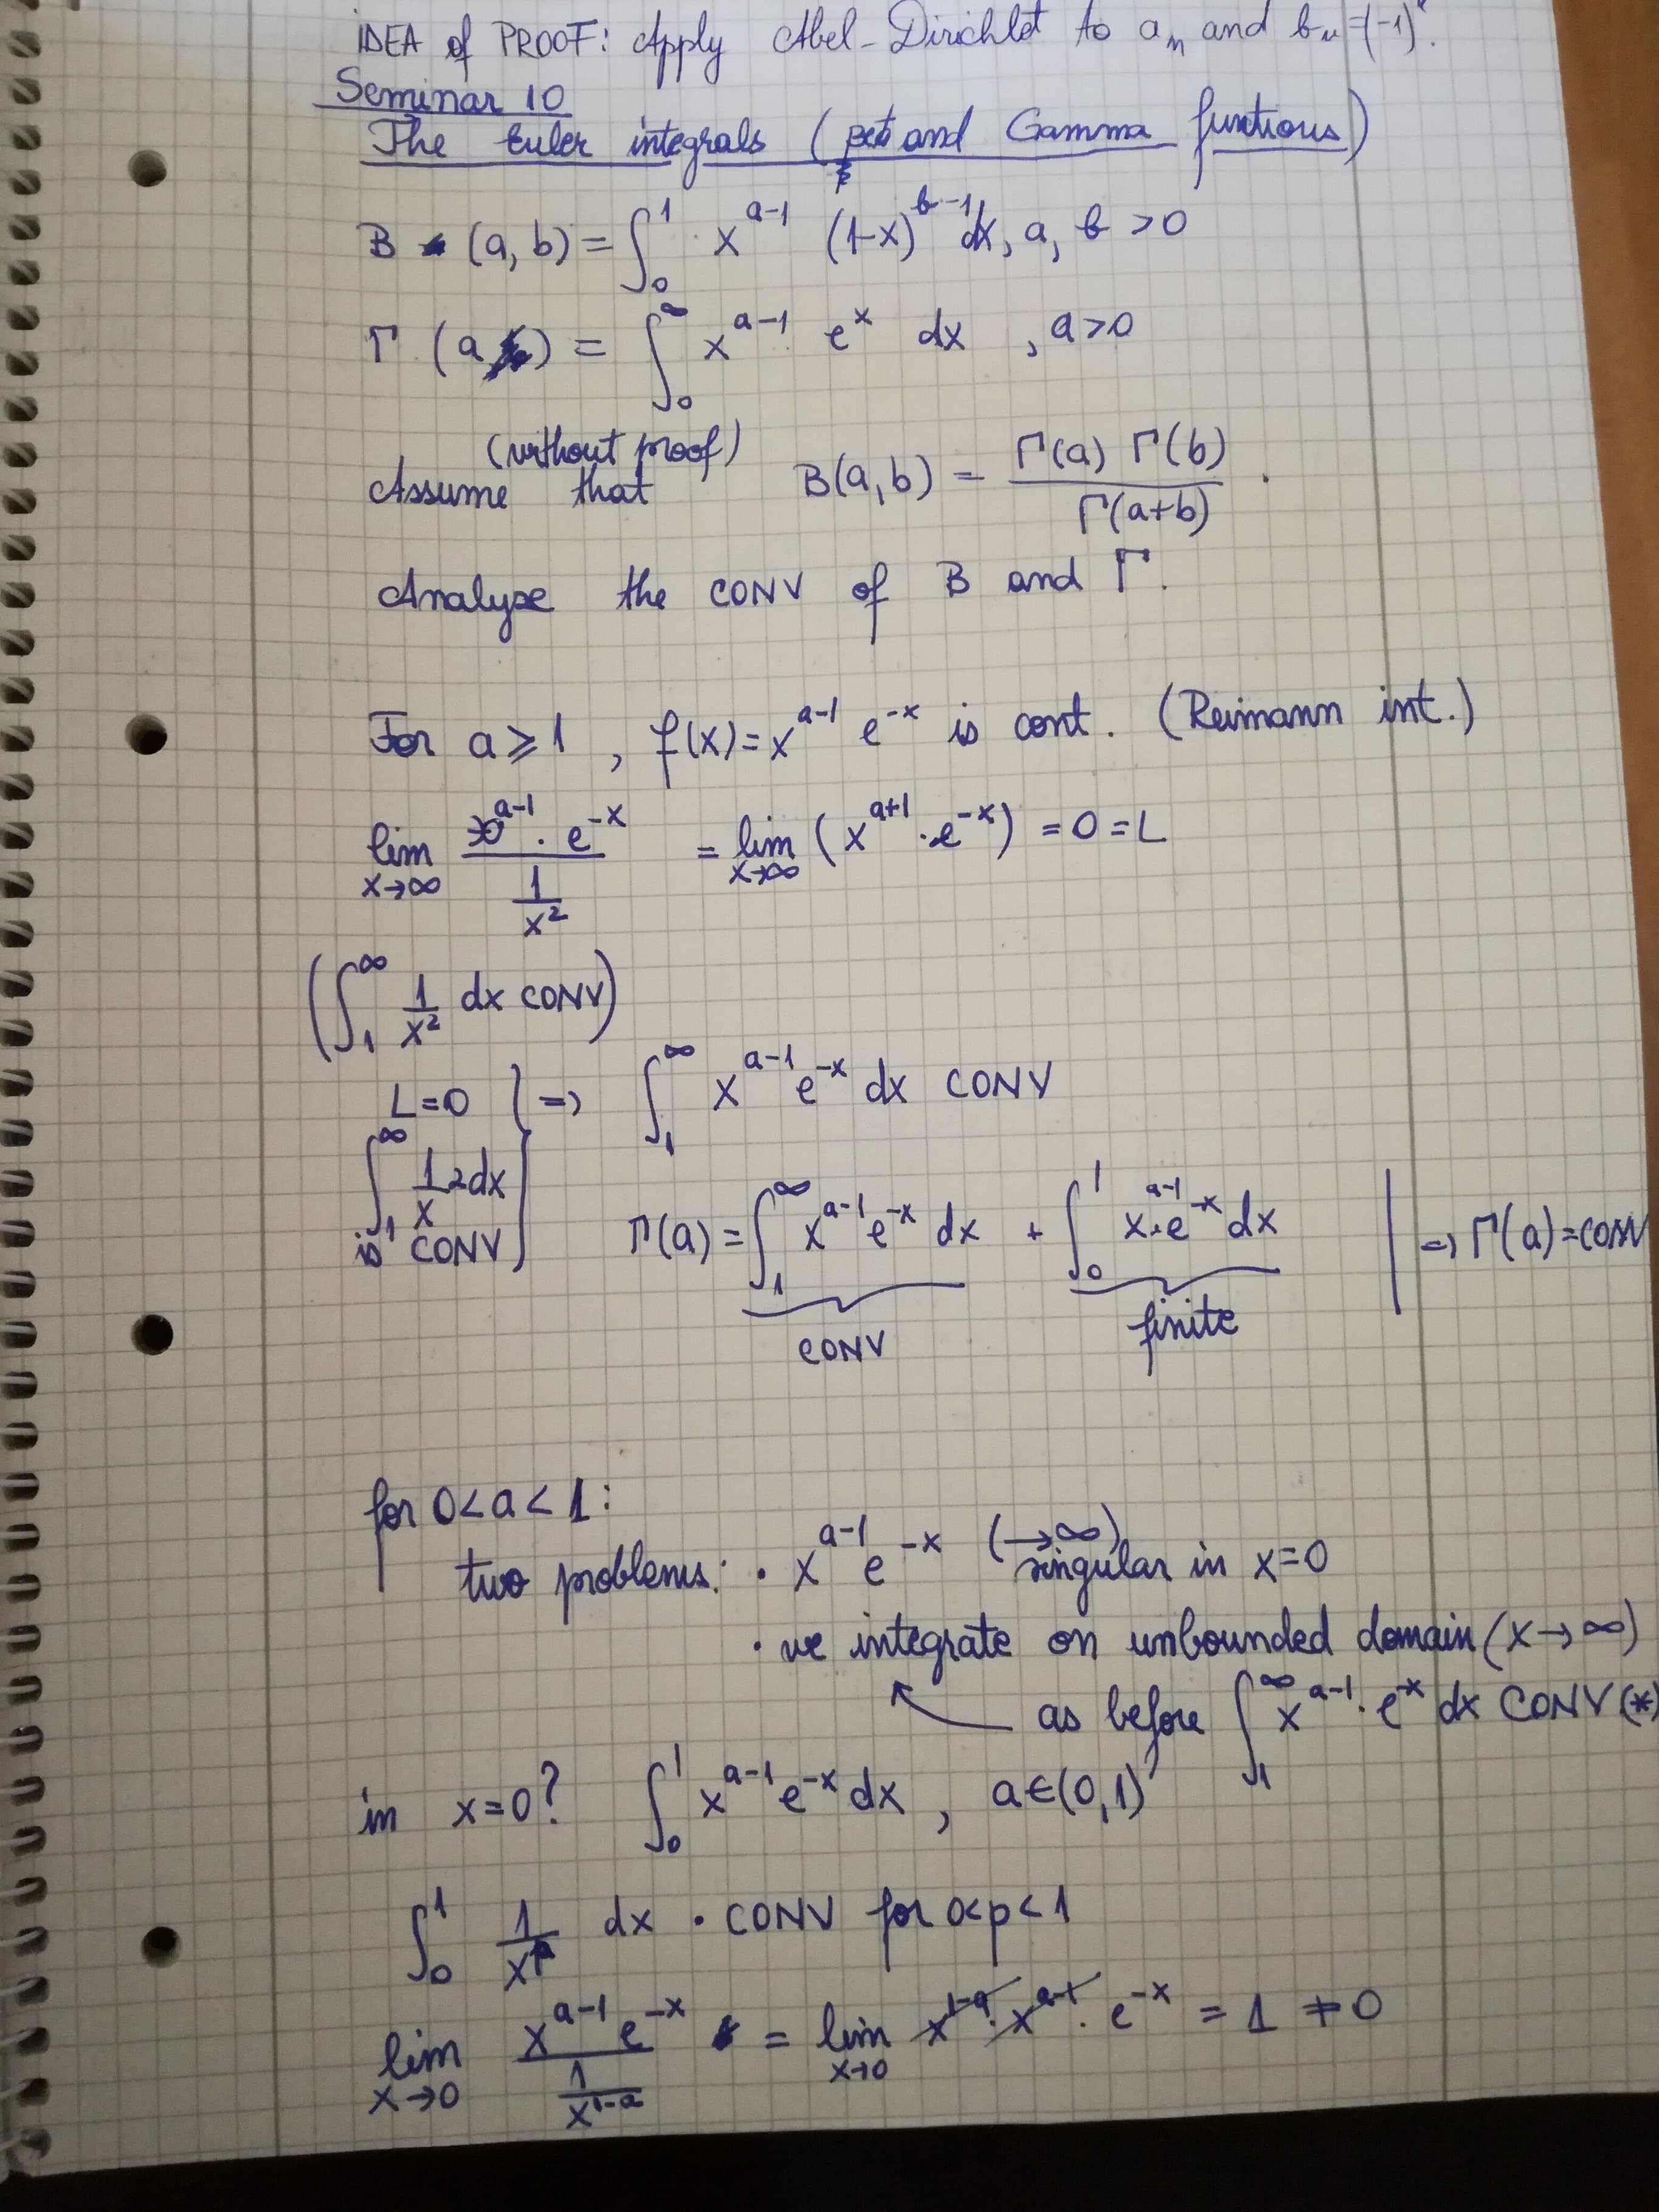 IDEA of PROOF: Apply Abel-Dirichlet to a_n and b_n=(-1)^n.
Seminar 10
The Euler integrals (Beta and Gamma functions)
B (a, b) = ∫_0^1 x^{a-1} (1-x)^{b-1} dx, a, b > 0
Γ (a) = ∫_0^∞ x^{a-1} e^x dx , a>0
(without proof)
Assume that B(a,b) = Γ(a) Γ(b) / Γ(a+b) .
Analyze the CONV of B and Γ.
For a ≥ 1 , f(x) = x^{a-1} e^{-x} is cont. (Reimann int.)
lim_{x→∞} (x^{a-1} · e^{-x}) / (1/x^2) = lim_{x→∞} (x^{a+1} · e^{-x}) = 0 = L
(∫_1^∞ 1/x^2 dx CONV)
L=0 } => ∫_1^∞ x^{a-1} e^{-x} dx CONV
∫_1^∞ 1/x^2 dx
is CONV
Γ(a) = ∫_1^∞ x^{a-1} e^{-x} dx + ∫_0^1 x^{a-1} · e^{-x} dx | => Γ(a) = CONV
CONV finite
for 0 < a < 1 :
two problems: · x^{a-1} e^{-x} (→∞) singular in x=0
· we integrate on unbounded domain (x → ∞)
as before ∫_1^∞ x^{a-1} · e^{-x} dx CONV (*)
in x=0? ∫_0^1 x^{a-1} e^{-x} dx , a∈(0,1)
∫_0^1 1/x^p dx · CONV for 0<p<1
lim_{x→0} (x^{a-1} e^{-x}) / (1/x^{1-a}) = lim_{x→0} x^{1-a} · x^{a-1} · e^{-x} = 1 ≠ 0